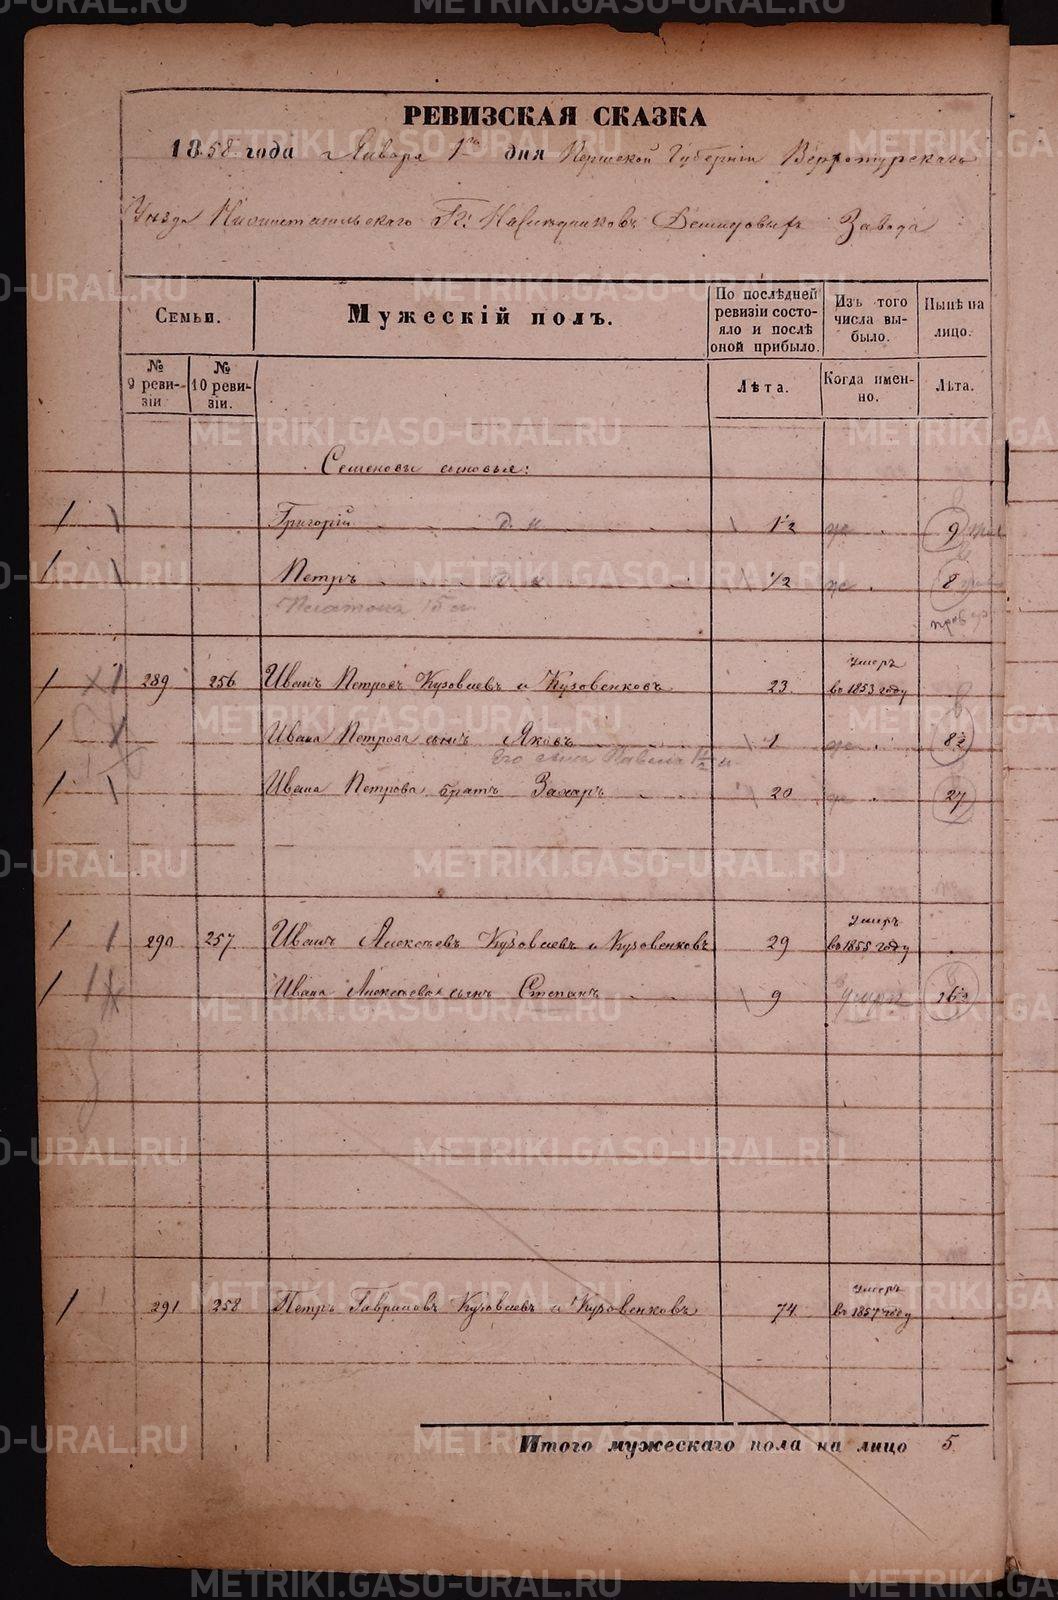 РЕВИЗСКАЯ СКАЗКА
1858 года Января 1го дня Пермской Губернiи Верхотурскаго
Уѣзда Нижнетагильскаго Гг. Наслѣдниковъ Демидовыхъ Завода
Семьи.
Мужескiй полъ.
По послѣдней ревизiи состояло и послѣ оной прибыло.
Изъ того числа выбыло.
Нынѣ на лицо.
№ 9 ревизiи
№ 10 ревизiи.
Лѣта.
Когда именно.
Лѣта.
Семеновы сыновья:
Григорiй 1/2 9
Петръ 1/2 8
289 256 Иванъ Петровъ Кузовлевъ и Кузовенковъ 23 умеръ въ 1853 году
Ивана Петрова сынъ Яковъ 8 1/2
Его сынъ Павелъ
Ивана Петрова братъ Захаръ 20 27
290 257 Иванъ Алексѣевъ Кузовлевъ и Кузовенковъ 29 умеръ въ 1855 году
Ивана Алексѣева сынъ Степанъ 9 умеръ
291 258 Петръ Гавриловъ Кузовлевъ и Кузовенковъ 74 умеръ въ 1857 году
Итого мужескаго пола на лицо 5
METRIKI.GASO-URAL.RU